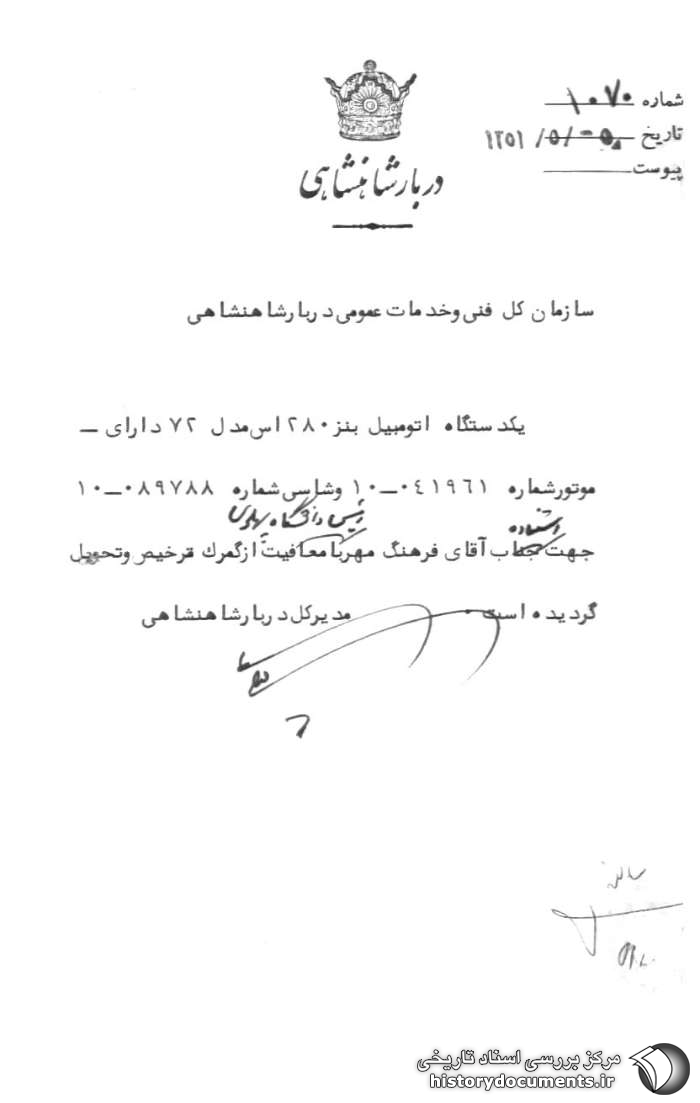 شماره ۱۰۷۰
تاریخ ۱۳۵۱/۵/
پیوست
دربار شاهنشاهی
سازمان کل فنی وخدمات عمومی دربارشاهنشاهی
یکدستگاه اتومبیل بنز ۲۸۰ اس مدل ۷۲ دارای —
موتورشماره ۰۴۱۹۶۱—۱۰ وشاسی شماره ۰۸۹۷۸۸—۱۰
استفاده رئیس دانشگاه پهلوی
جهت جناب آقای فرهنگ مهر با معافیت ازگمرک ترخیص وتحویل
گردیده است . مدیرکل دربارشاهنشاهی
مرکز بررسی اسناد تاریخی
historydocuments.ir